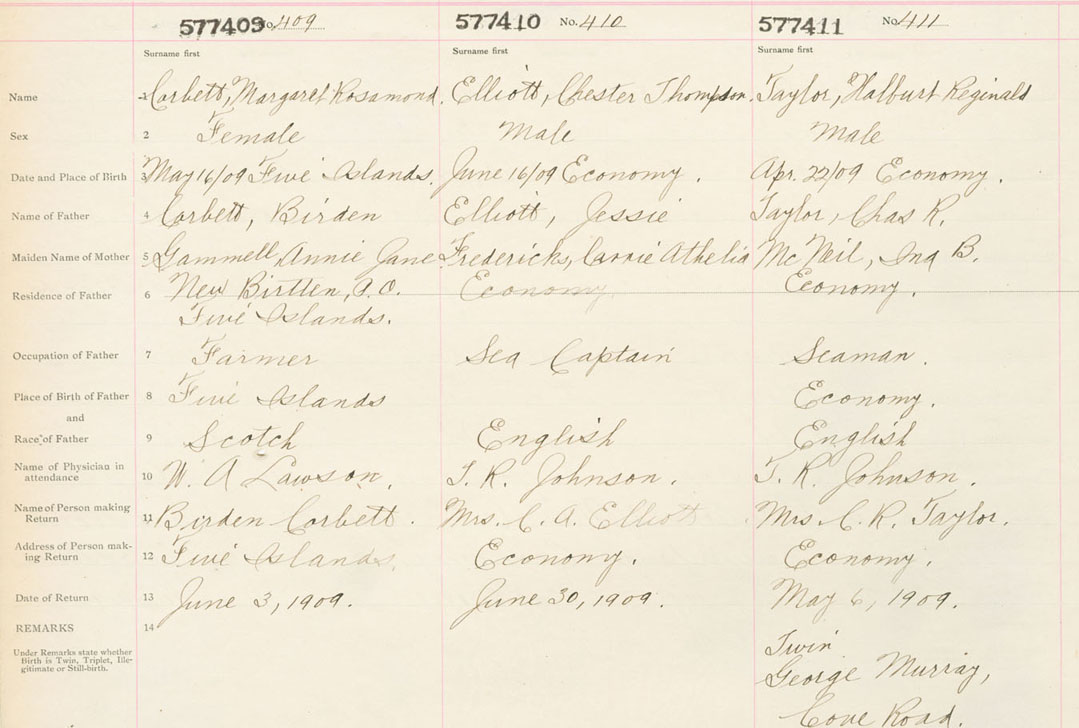 577409 No. 409 577410 No. 410 577411 No. 411
Surname first Surname first Surname first
Name 1 Corbett, Margaret Rosamond. Elliott, Chester Thompson. Taylor, Halburt Reginald
Sex 2 Female Male Male
Date and Place of Birth 3 May 16/09 Five Islands. June 16/09 Economy. Apr. 22/09 Economy.
Name of Father 4 Corbett, Birden Elliott, Jessie Taylor, Chas R.
Maiden Name of Mother 5 Gammell, Annie Jane Fredericks, Carrie Athelia McNeil, Ina B.
Residence of Father 6 New Birtten, P.O. Economy Economy.
Five Islands.
Occupation of Father 7 Farmer Sea Captain Seaman.
Place of Birth of Father 8 Five Islands Economy.
and
Race of Father 9 Scotch English English
Name of Physician in
attendance 10 W. A Lawson. T. R. Johnson. T. R. Johnson.
Name of Person making
Return 11 Birden Corbett. Mrs. C. A. Elliott Mrs. C. R. Taylor.
Address of Person mak-
ing Return 12 Five Islands. Economy. Economy.
Date of Return 13 June 3, 1909. June 30, 1909. May 6, 1909.
REMARKS 14
Under Remarks state whether
Birth is Twin, Triplet, Ille-
gitimate or Still-birth.
Twin
George Murray,
Cove Road.